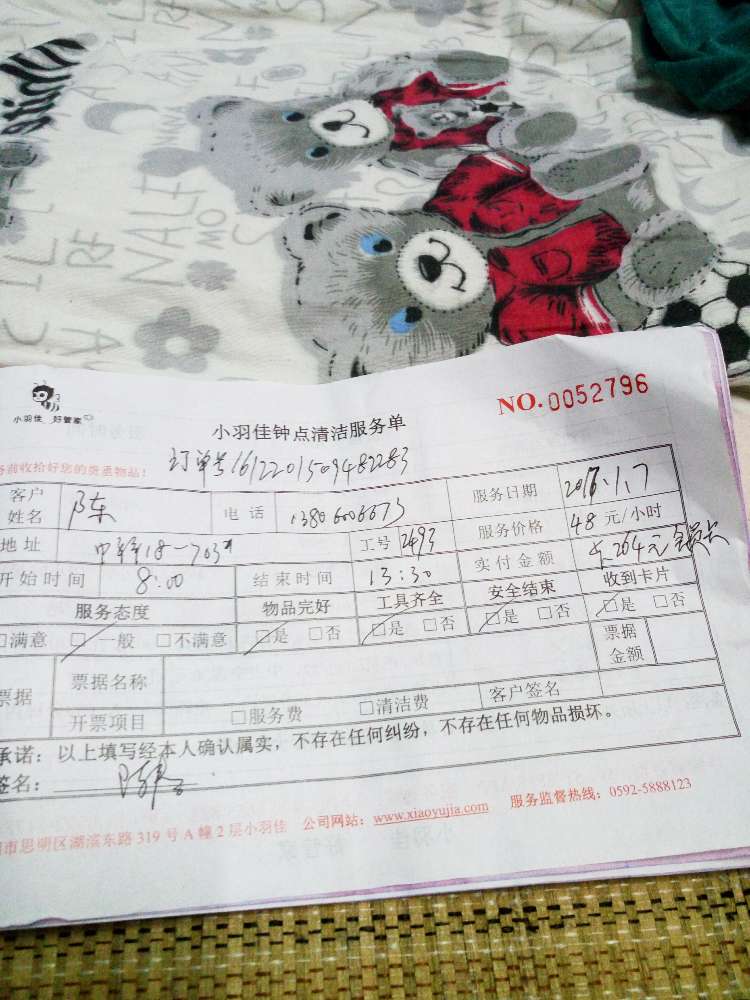 小羽佳 好管家
NO.0052796
小羽佳钟点清洁服务单
务前收拾好您的贵重物品!
订单号1612201509482283
客户姓名 陈 电话 13806006673 服务日期 2017.1.7
地址 18-703 工号 2493 服务价格 48元/小时
开始时间 8:00 结束时间 13:30 实付金额 卡264元 会员卡
服务态度 物品完好 工具齐全 安全结束 收到卡片
□满意 □一般 □不满意 □是 □否 □是 □否 □是 □否 □是 □否
票据 票据名称 票据金额
开票项目 □服务费 □清洁费 客户签名
承诺:以上填写经本人确认属实,不存在任何纠纷,不存在任何物品损坏。
签名:
市思明区湖滨东路319号A幢2层小羽佳 公司网站:www.xiaoyujia.com 服务监督热线:0592-5888123